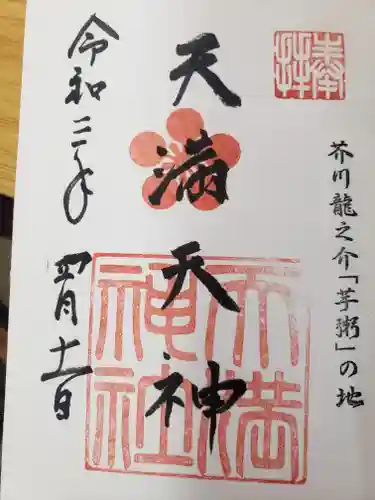 奉拝
芥川龍之介「芋粥」の地
天満天神
天満
神社
令和三年
四月十一日